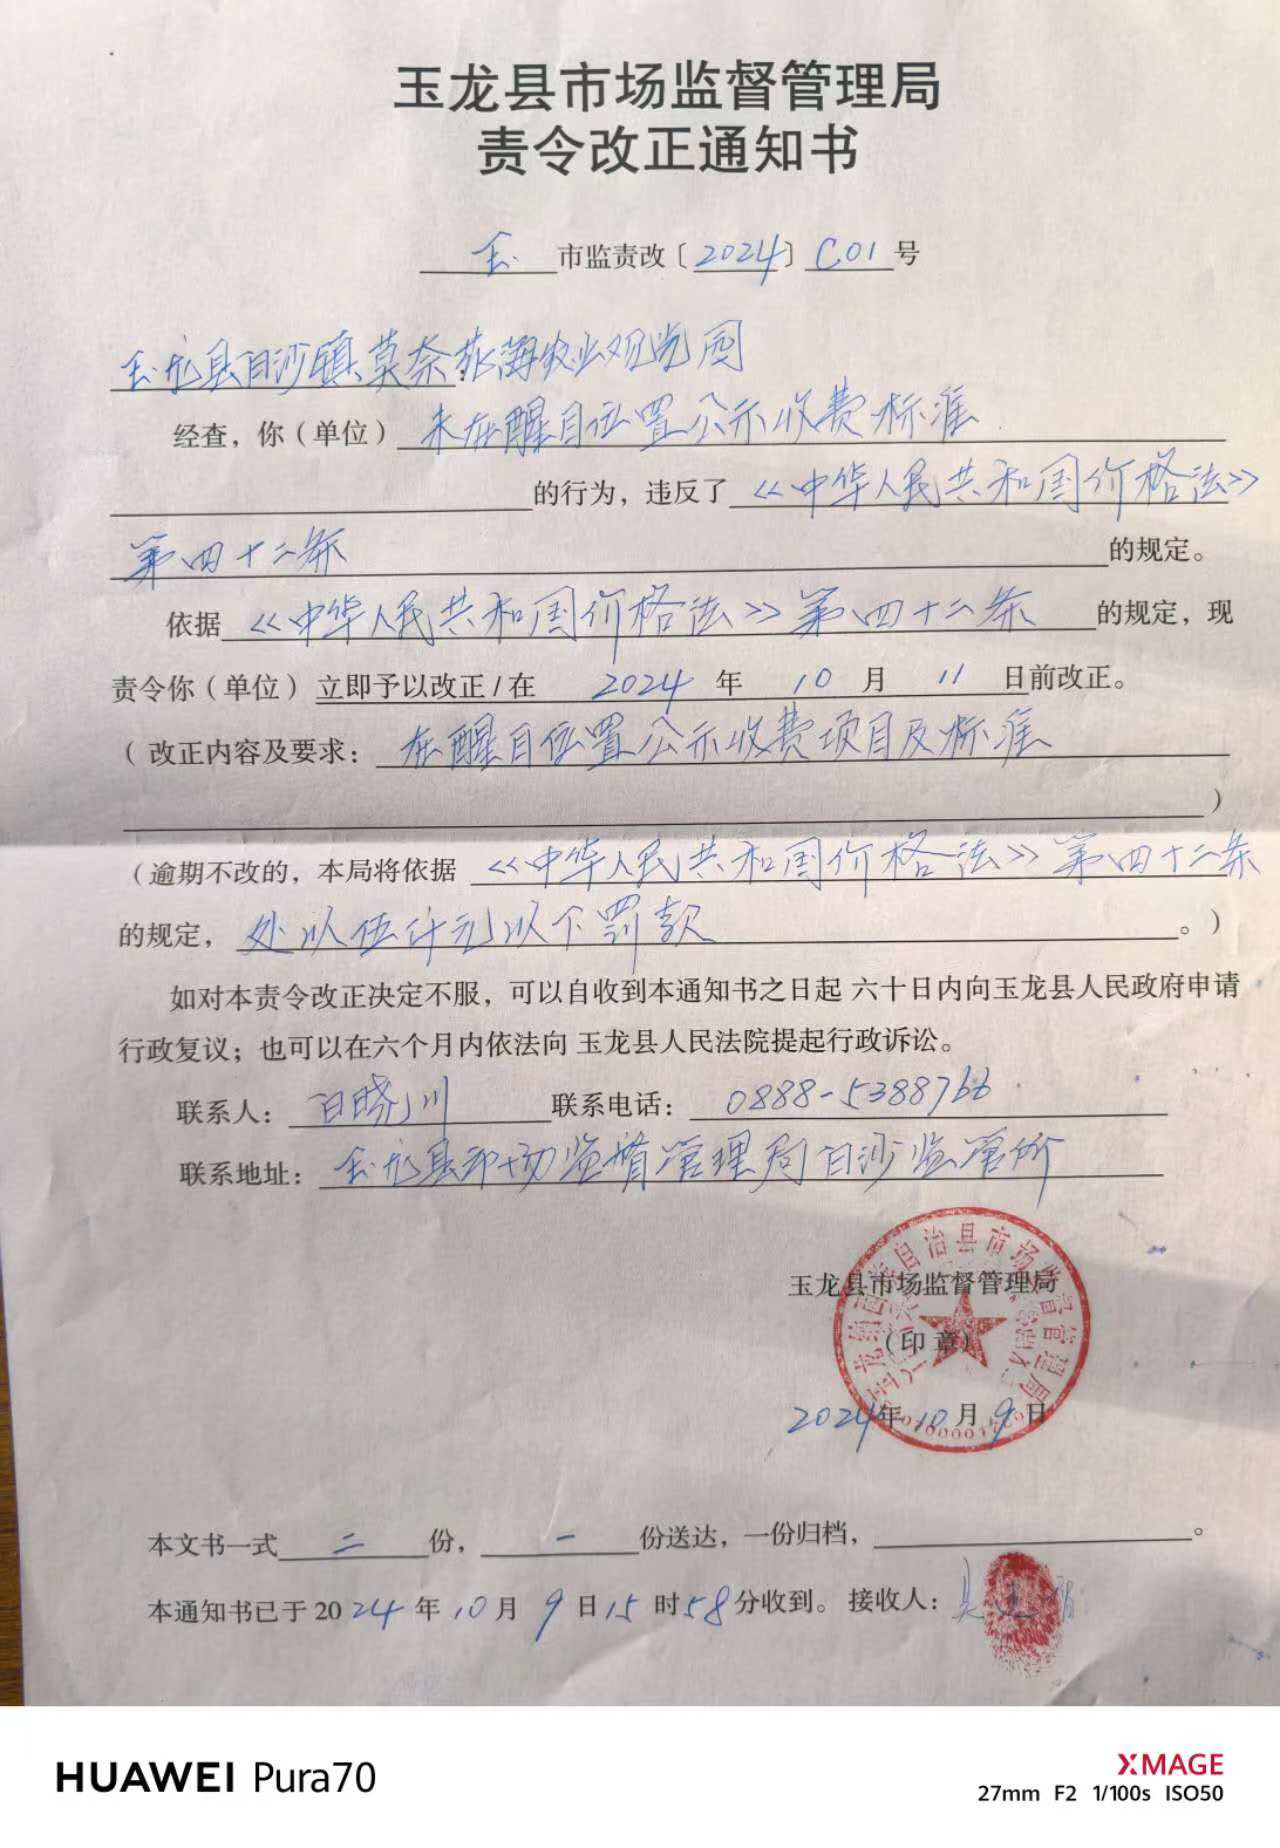 玉龙县市场监督管理局
责令改正通知书
玉 市监责改〔2024〕C01号
玉龙县白沙镇莫奈花海农业观光园
经查，你（单位）未在醒目位置公示收费标准
的行为，违反了《中华人民共和国价格法》
第四十二条 的规定。
依据《中华人民共和国价格法》第四十二条 的规定，现
责令你（单位）立即予以改正/在 2024 年 10 月 11 日前改正。
（改正内容及要求：在醒目位置公示收费项目及标准
）
（逾期不改的，本局将依据《中华人民共和国价格法》第四十二条
的规定，处以伍仟元以下罚款。）
如对本责令改正决定不服，可以自收到本通知书之日起 六十日内向玉龙县人民政府申请
行政复议；也可以在六个月内依法向 玉龙县人民法院提起行政诉讼。
联系人：白晓川 联系电话：0888-5388766
联系地址：玉龙县市场监督管理局白沙监管所
玉龙纳西族自治县市场监督管理局
玉龙县市场监督管理局
（印章）
2024年10月9日
本文书一式 二 份， 一 份送达，一份归档， 。
本通知书已于2024年10月9日15时58分收到。接收人：
HUAWEI Pura70
XMAGE
27mm F2 1/100s ISO50